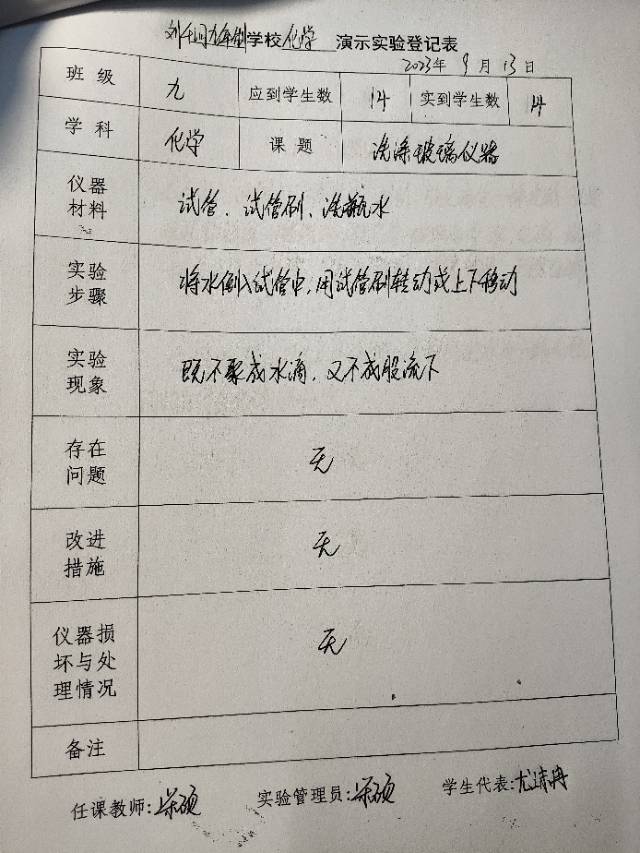 九年制学校 化学 演示实验登记表
2023年 9月 13日
班级 九 应到学生数 14 实到学生数 14
学科 化学 课题 洗涤玻璃仪器
仪器
材料
试管、试管刷、洗瓶水
实验
步骤
将水倒入试管中,用试管刷转动或上下移动
实验
现象
既不聚成水滴,又不成股流下
存在
问题
无
改进
措施
无
仪器损
坏与处
理情况
无
备注
任课教师: 实验管理员: 学生代表: